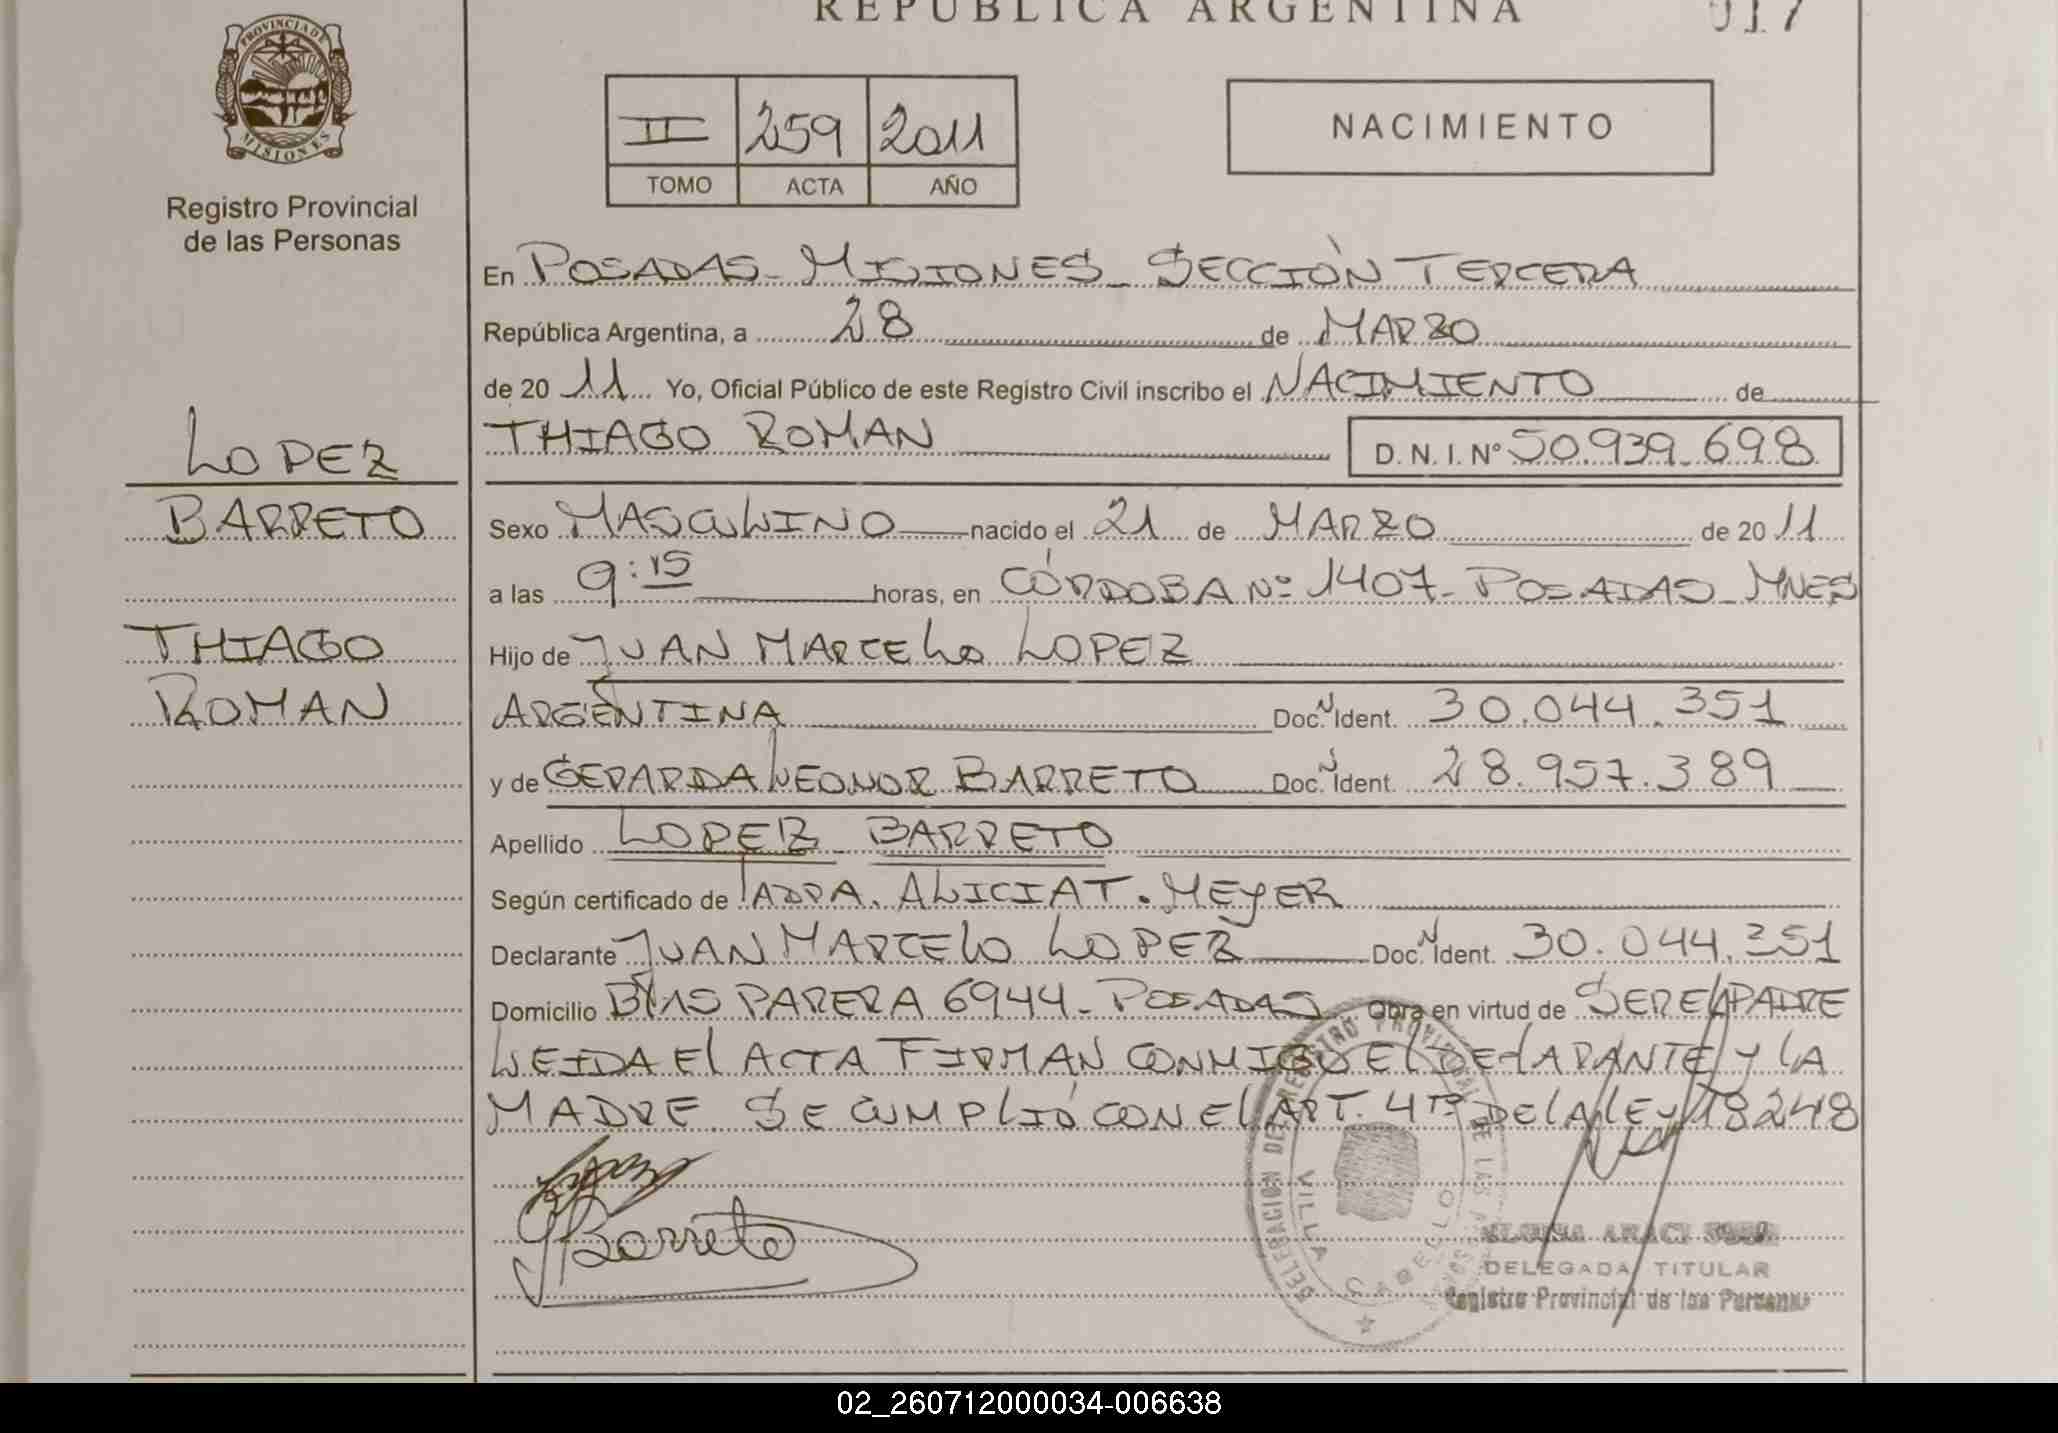 REPÚBLICA ARGENTINA
017
PROVINCIA DE
MISIONES
Registro Provincial
de las Personas
II 259 2011
TOMO ACTA AÑO
NACIMIENTO
LOPEZ
BARRETO
THIAGO
ROMAN
En POSADAS - MISIONES - SECCIÓN TERCERA
República Argentina, a 28 de MARZO
de 2011 Yo, Oficial Público de este Registro Civil inscribo el NACIMIENTO de
THIAGO ROMAN D. N. I. Nº 50.939.698
Sexo MASCULINO nacido el 21 de MARZO de 2011
a las 9:15 horas, en CÓRDOBA Nº 1407 - POSADAS - MNES
Hijo de JUAN MARCELO LOPEZ
ARGENTINA Doc. N Ident. 30.044.351
y de GERARDA LEONOR BARRETO Doc. N Ident. 28.957.389
Apellido LOPEZ BARRETO
Según certificado de LA DRA. ALICIA T. MEYER
Declarante JUAN MARCELO LOPEZ Doc. N Ident. 30.044.351
Domicilio BLAS PARERA 6944 - POSADAS Obra en virtud de SER EL PADRE
LEIDA EL ACTA FIRMAN CONMIGO EL DECLARANTE Y LA
MADRE SE CUMPLIÓ CON EL ART. 4TO DE LA LEY 18248
Barreto
DELEGACION DEL REGISTRO PROVINCIAL DE LAS
VILLA CABELLO
ARACI
DELEGADA TITULAR
Registro Provincial de las Personas
02_260712000034-006638